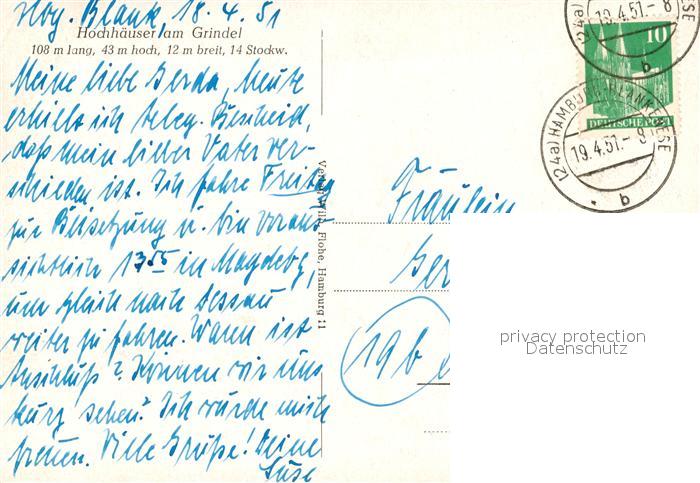 Hbg. Blank, 18. 4. 51
Hochhäuser am Grindel
108 m lang, 43 m hoch, 12 m breit, 14 Stockw.
Meine liebe Gerda, heute
erhielt ich teleg. Bescheid,
daß mein lieber Vater ver-
schieden ist. Ich fahre Freitag
zur Beisetzung u. bin voraus-
sichtlich 13⁵⁵ in Magdebg,
um gleich nach Dessau
weiter zu fahren. Wann ist
Anschluß? Können wir uns
kurz sehen? Ich würde mich
freuen. Viele Grüße! Deine
Suse
Flohe, Hamburg 11
Fräulein
Ger
19b
10
DEUTSCHE POST
19.4.51.-8
b
(24a) HAMBURG-BLANKENESE
19.4.51.-8
b
privacy protection
Datenschutz